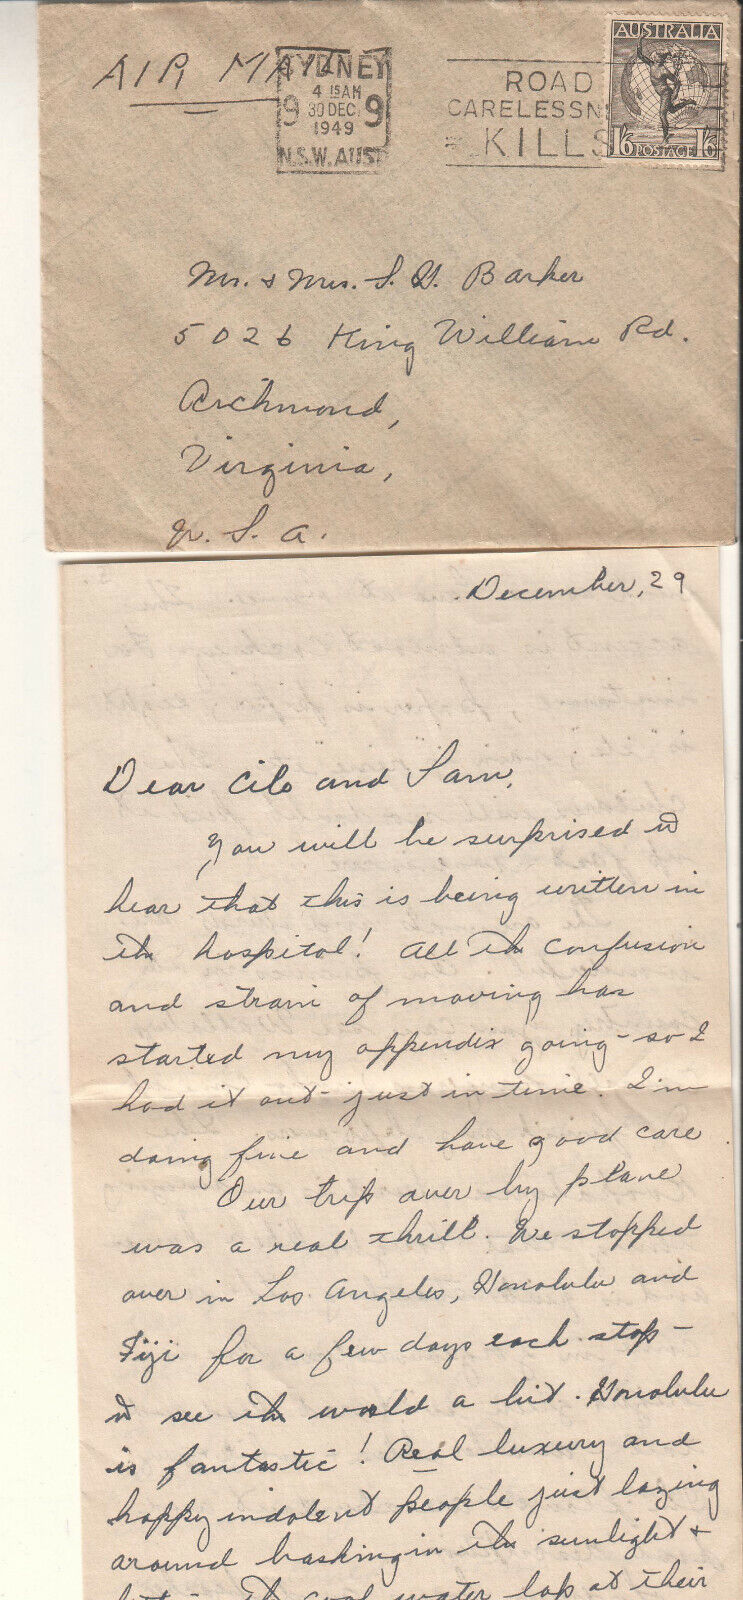 AIR MAIL
SYDNEY
4 15AM
9 30 DEC 9
1949
N.S.W. AUST
ROAD
CARELESSN
KILLS
AUSTRALIA
1/6 POSTAGE 1/6
Mr. & Mrs. S. G. Barker
5026 King William Rd.
Richmond,
Virginia,
U. S. A.
December, 29
Dear Cile and Sam,
You will be surprised to
hear that this is being written in
the hospital! All the confusion
and strain of moving has
started my appendix going - so I
had it out - just in time. I'm
doing fine and have good care
Our trip over by plane
was a real thrill. We stopped
over in Los Angeles, Honolulu and
Fiji for a few days each stop -
to see the world a bit. Honolulu
is fantastic! Real luxury and
happy indolent people just lazing
around basking in the sunlight &
the cool water lap at their